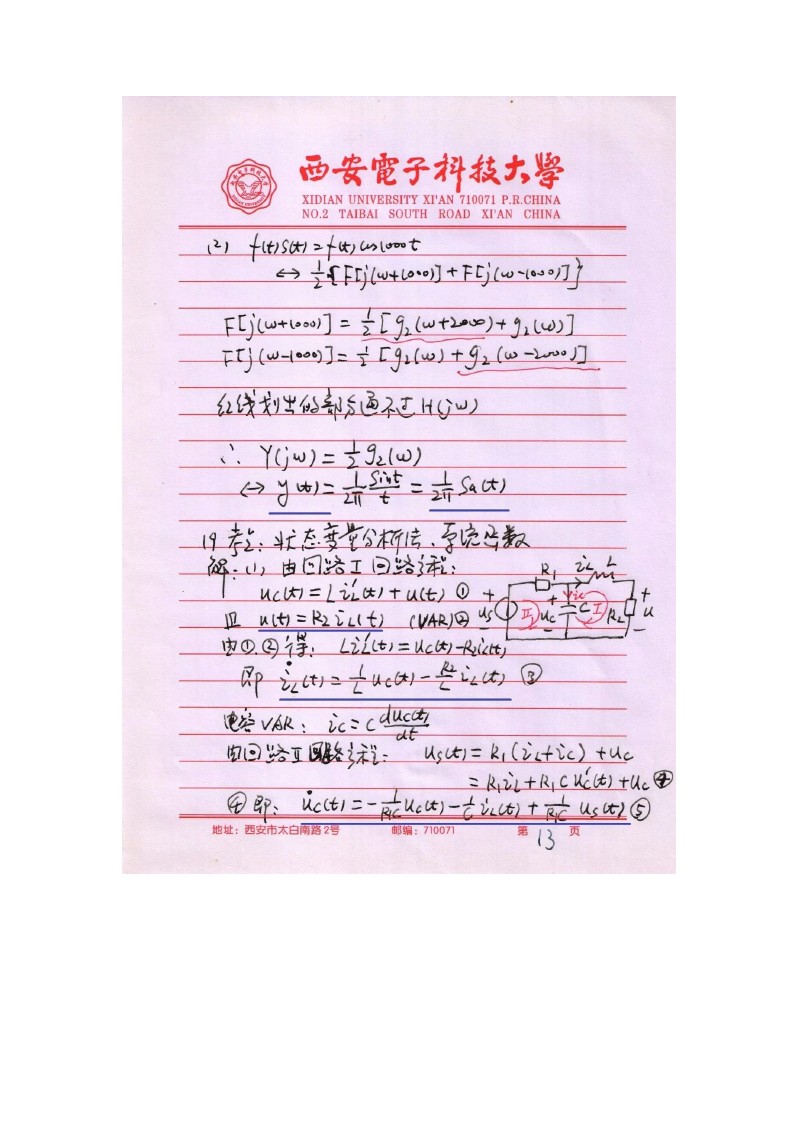 西安電子科技大學
XIDIAN UNIVERSITY XI'AN 710071 P.R.CHINA
NO.2 TAIBAI SOUTH ROAD XI'AN CHINA
(2) f(t)s(t) = f(t)cos1000t
↔ 1/2{F[j(ω+1000)] + F[j(ω-1000)]}
F[j(ω+1000)] = 1/2[g₂(ω+2000) + g₂(ω)]
F[j(ω-1000)] = 1/2[g₂(ω) + g₂(ω-2000)]
红线划出的部分通不过H(jω)
∴ Y(jω) = 1/2 g₂(ω)
↔ y(t) = 1/2π sint/t = 1/2π Sa(t)
19 考点: 状态变量分析法、系统函数
解: (1) 由回路I回路方程:
uc(t) = L i'L(t) + u(t) ①
且 u(t) = R₂ iL(t) (VAR) ②
由①、②得: L i'L(t) = uc(t) - R₂iL(t)
即 i̇L(t) = 1/L uc(t) - R₂/L iL(t) ③
R₁ iL L
+ us - + uc - ic C I II R₂ + u -
电容VAR: ic = C duc(t)/dt
由回路II回路方程: us(t) = R₁(iL+ic) + uc
= R₁iL + R₁C u'c(t) + uc ④
④即: u̇c(t) = -1/R₁C uc(t) - 1/C iL(t) + 1/R₁C us(t) ⑤
地址: 西安市太白南路2号 邮编: 710071 第 13 页